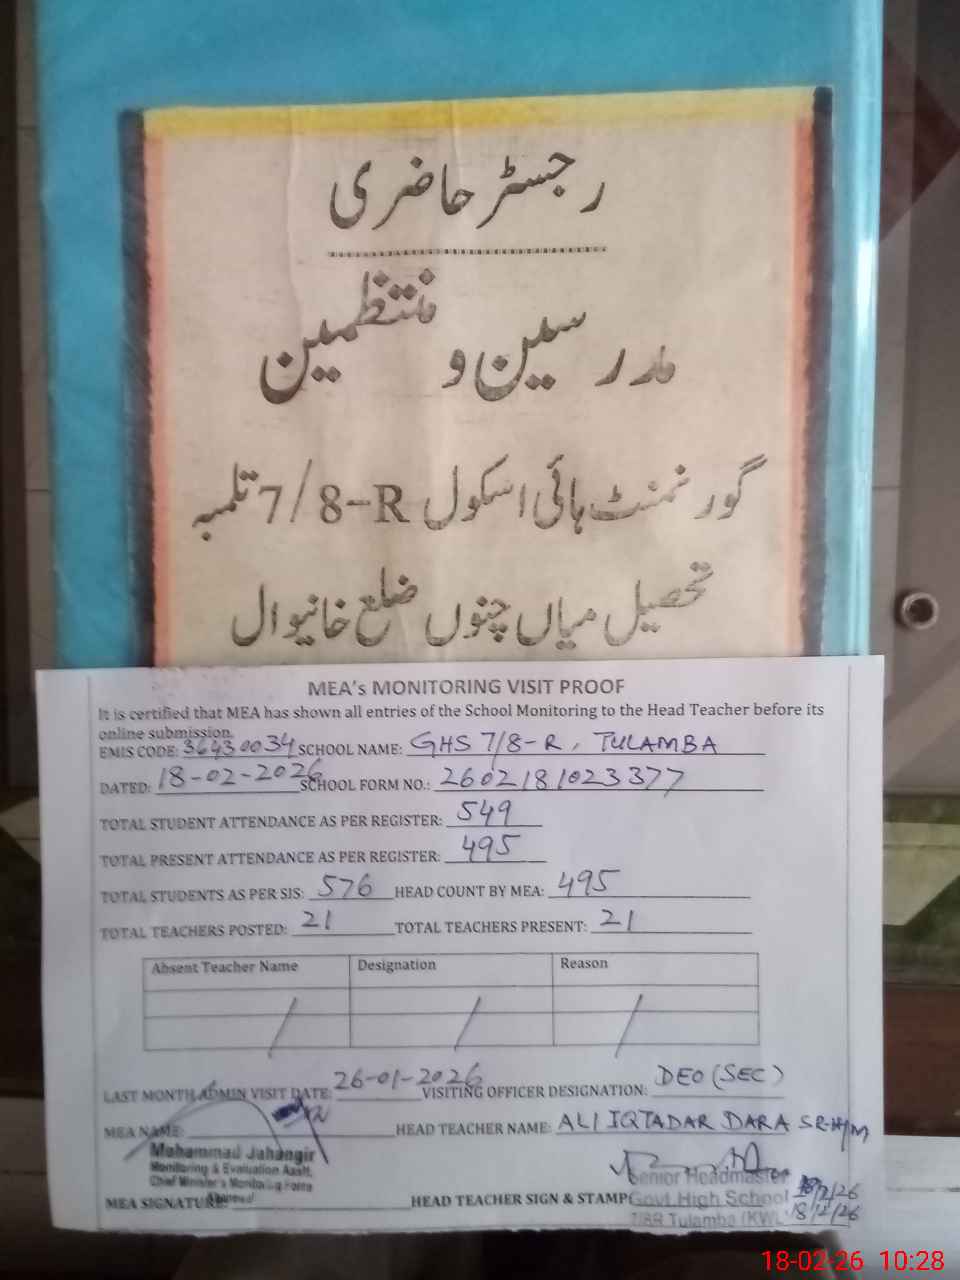 رجسٹر حاضری
مدرسین و منتظمین
گورنمنٹ ہائی اسکول 7/8-R تلمبہ
تحصیل میاں چنوں ضلع خانیوال
MEA's MONITORING VISIT PROOF
It is certified that MEA has shown all entries of the School Monitoring to the Head Teacher before its
online submission.
EMIS CODE: 36430034 SCHOOL NAME: GHS 7/8-R, TULAMBA
DATED: 18-02-2026 SCHOOL FORM NO.: 2602181023377
TOTAL STUDENT ATTENDANCE AS PER REGISTER: 549
TOTAL PRESENT ATTENDANCE AS PER REGISTER: 495
TOTAL STUDENTS AS PER SIS: 576 HEAD COUNT BY MEA: 495
TOTAL TEACHERS POSTED: 21 TOTAL TEACHERS PRESENT: 21
Absent Teacher Name Designation Reason
LAST MONTH ADMIN VISIT DATE: 26-01-2026 VISITING OFFICER DESIGNATION: DEO (SEC)
MEA NAME: HEAD TEACHER NAME: ALI IQTADAR DARA SR-H/M
Mohammad Jahangir
Monitoring & Evaluation Asstt,
Chief Minister's Monitoring Force
Khanewal
MEA SIGNATURE: HEAD TEACHER SIGN & STAMP
Senior Headmaster
Govt. High School
7/8R Tulamba (KWL)
18/2/26
18-02-26 10:28